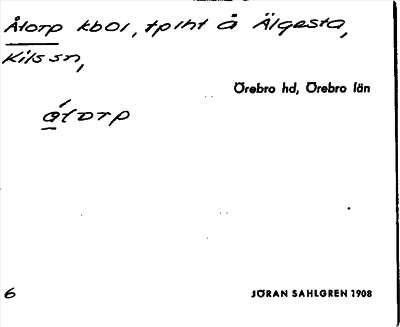 Åtorp kbol, tplht å Älgesta,
Kils sn,
Örebro hd, Örebro län
åtorp
6
JÖRAN SAHLGREN 1908